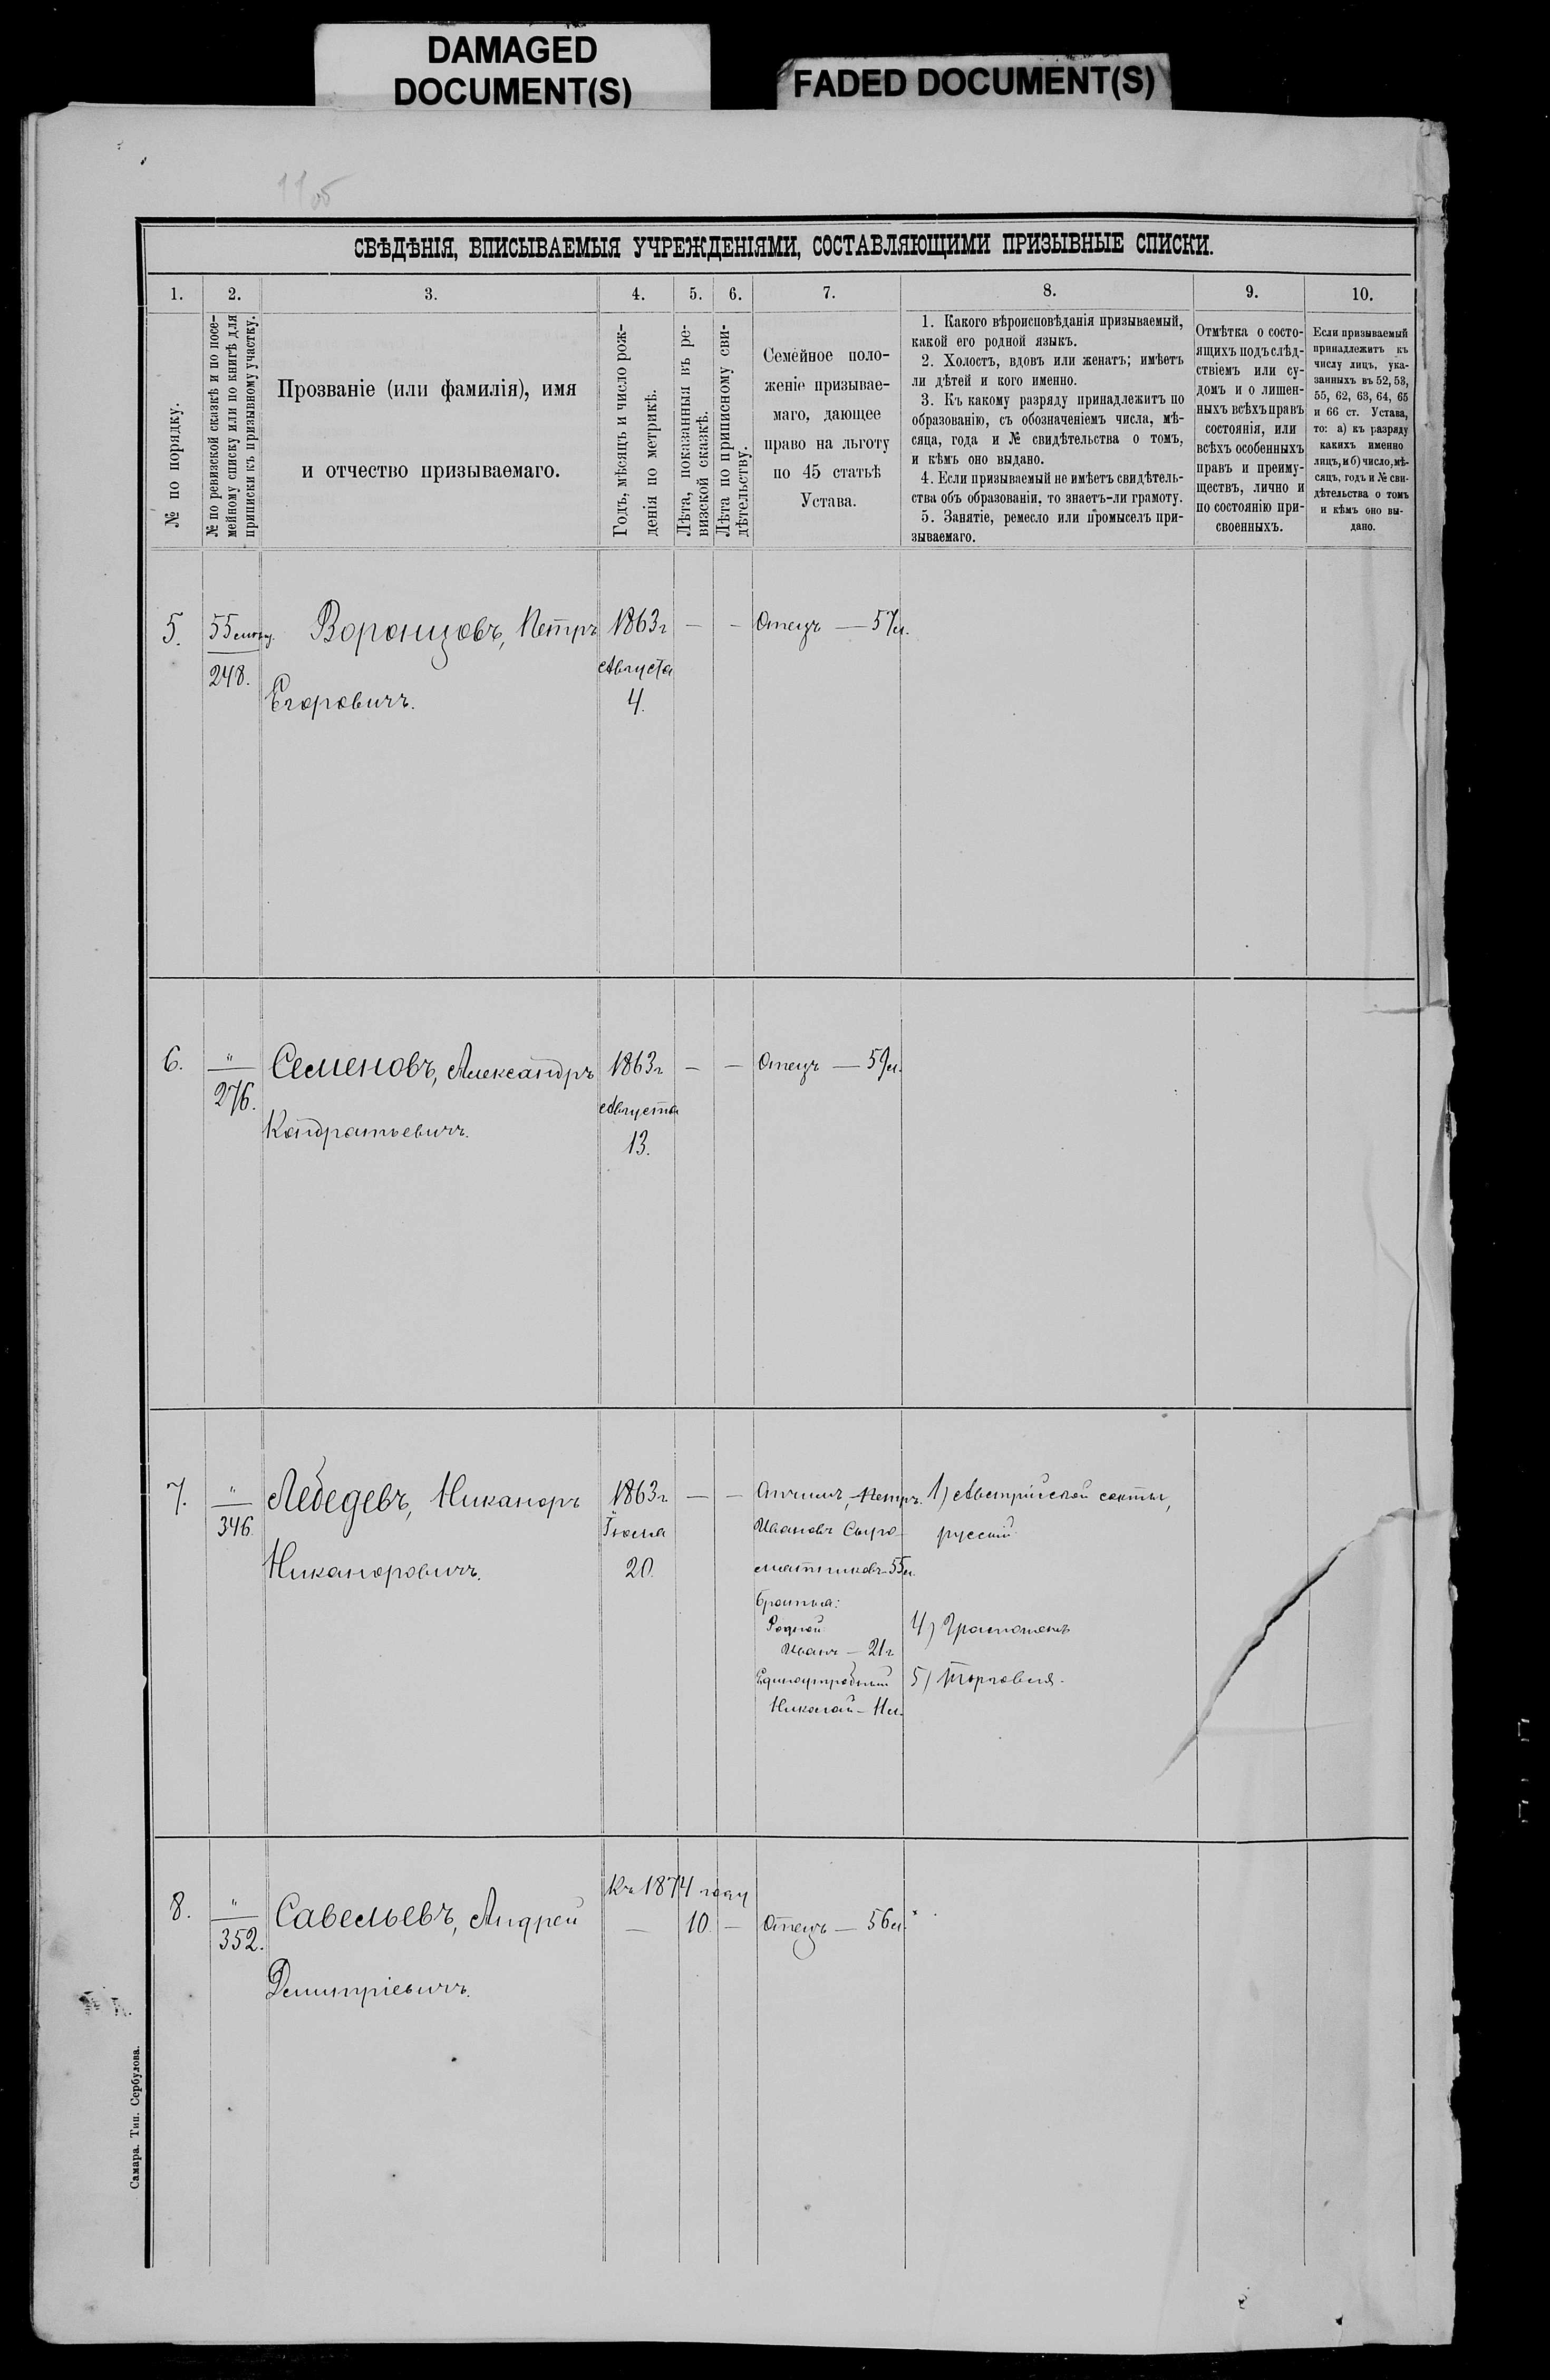 DAMAGED
DOCUMENT(S)
FADED DOCUMENT(S)
СВѢДѢНІЯ, ВПИСЫВАЕМЫЯ УЧРЕЖДЕНІЯМИ, СОСТАВЛЯЮЩИМИ ПРИЗЫВНЫЕ СПИСКИ.
1.
2.
3.
4.
5.
6.
7.
8.
9.
10.
№ по порядку.
№ по ревизской сказкѣ и по посе-
мейному списку или по книгѣ для
приписки къ призывному участку.
Прозваніе (или фамилія), имя
и отчество призываемаго.
Годъ, мѣсяцъ и число рож-
денія по метрикѣ.
Лѣта, показанныя въ ре-
визской сказкѣ.
Лѣта по приписному сви-
дѣтельству.
Семейное поло-
женіе призывае-
маго, дающее
право на льготу
по 45 статьѣ
Устава.
1. Какого вѣроисповѣданія призываемый,
какой его родной языкъ.
2. Холостъ, вдовъ или женатъ; имѣетъ
ли дѣтей и кого именно.
3. Къ какому разряду принадлежитъ по
образованію, съ обозначеніемъ числа, мѣ-
сяца, года и № свидѣтельства о томъ,
и кѣмъ оно выдано.
4. Если призываемый не имѣетъ свидѣтель-
ства объ образованіи, то знаетъ-ли грамоту.
5. Занятіе, ремесло или промыселъ при-
зываемаго.
Отмѣтка о состо-
ящихъ подъ слѣд-
ствіемъ или су-
домъ и о лишен-
ныхъ всѣхъ правъ
состоянія, или
всѣхъ особенныхъ
правъ и преиму-
ществъ, лично и
по состоянію при-
своенныхъ.
Если призываемый
принадлежитъ къ
числу лицъ, ука-
занныхъ въ 52, 53,
55, 62, 63, 64, 65
и 66 ст. Устава,
то: а) къ разряду
какихъ именно
лицъ, и б) число, мѣ-
сяцъ, годъ и № сви-
дѣтельства о томъ
и кѣмъ оно вы-
дано.
5.
55
248.
Воронцовъ, Петръ
Егоровичъ.
1863г
Августа
4.
—
—
Отецъ — 57л.
6.
"
276.
Семеновъ, Александръ
Кондратьевичъ.
1863г
Августа
13.
—
—
Отецъ — 59л.
7.
"
346.
Лебедевъ, Никаноръ
Никаноровичъ.
1863г.
Іюля
20.
—
—
Отчимъ, Петръ
Ивановъ Сыро-
мятниковъ 55л.
братья:
Родной
Иванъ — 21г
Единоутробный
Николай — 11л.
1) Австрійской секты,
русскій
4) Грамотенъ
5) Торговля.
8.
"
352.
Савельевъ, Андрей
Дмитріевичъ.
Къ 1874 году
—
10.
—
Отецъ — 56л.
Самара. Тип. Сербулова.